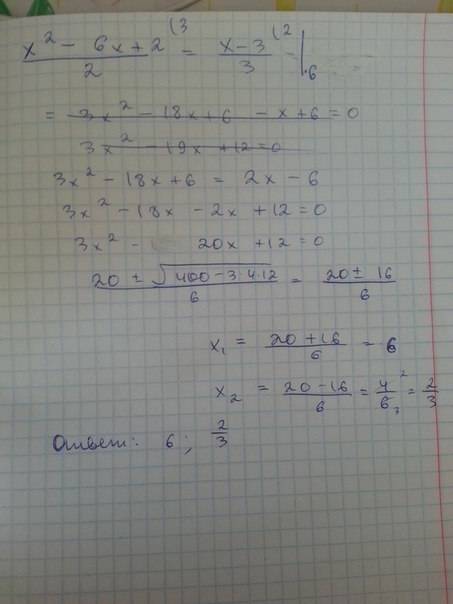 (x² - 6x + 2)/2 ⁽³ = (x - 3)/3 ⁽² |·6
= 3x² - 18x + 6 - x + 6 = 0
3x² - 19x + 12 = 0
3x² - 18x + 6 = 2x - 6
3x² - 18x - 2x + 12 = 0
3x² - 20x + 12 = 0
(20 ± √(400 - 3·4·12))/6 = (20 ± 16)/6
x₁ = (20 + 16)/6 = 6
x₂ = (20 - 16)/6 = 4²/6₃ = 2/3
Ответ: 6; 2/3